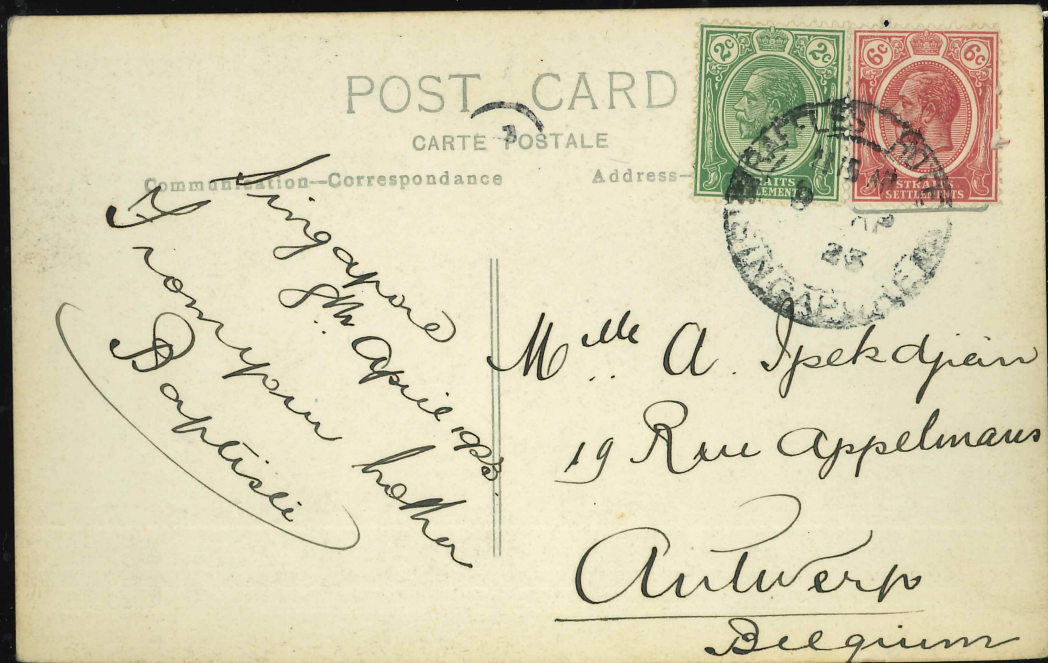 POST CARD
CARTE POSTALE
Communication—Correspondance
Address—
2c 2c
STRAITS SETTLEMENTS
6c 6c
STRAITS
SETTLEMENTS
RAFFLES HOTEL
AP
23
SINGAPORE
3
Singapore
8th April 1923.
From your brother
Baptiste
Mlle A. Ipekdjian
19 Rue Appelmans
Antwerp
Belgium